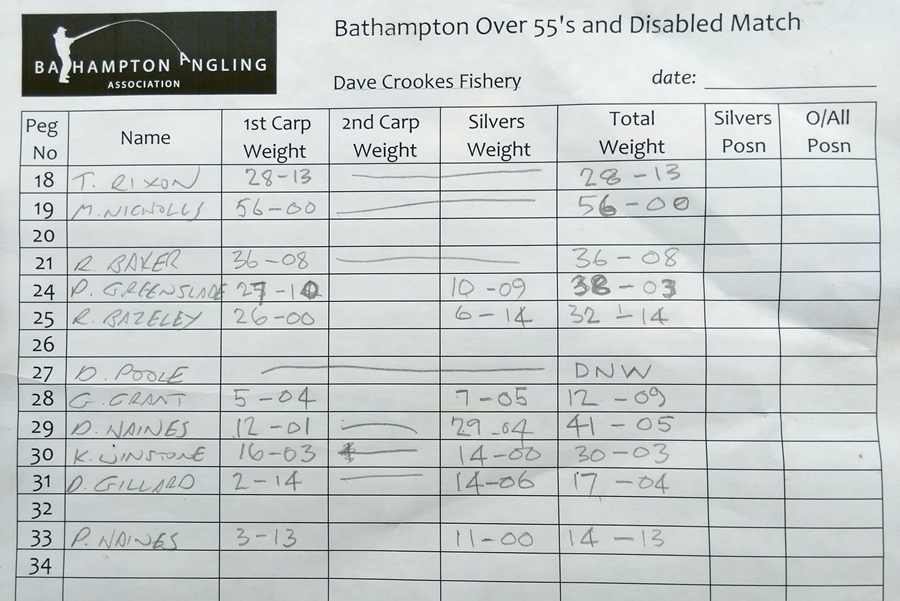 BATHAMPTON ANGLING
ASSOCIATION
Bathampton Over 55's and Disabled Match
Dave Crookes Fishery date:
Peg No Name 1st Carp Weight 2nd Carp Weight Silvers Weight Total Weight Silvers Posn O/All Posn
18 T. RIXON 28-13 28-13
19 M. NICHOLLS 56-00 56-00
20
21 R. BAKER 36-08 36-08
24 P. GREENSLADE 27-10 10-09 38-03
25 R. BAZELEY 26-00 6-14 32-14
26
27 D. POOLE DNW
28 G. GRANT 5-04 7-05 12-09
29 D. HAINES 12-01 29-04 41-05
30 K. WINSTONE 16-03 14-00 30-03
31 D. GILLARD 2-14 14-06 17-04
32
33 P. HAINES 3-13 11-00 14-13
34